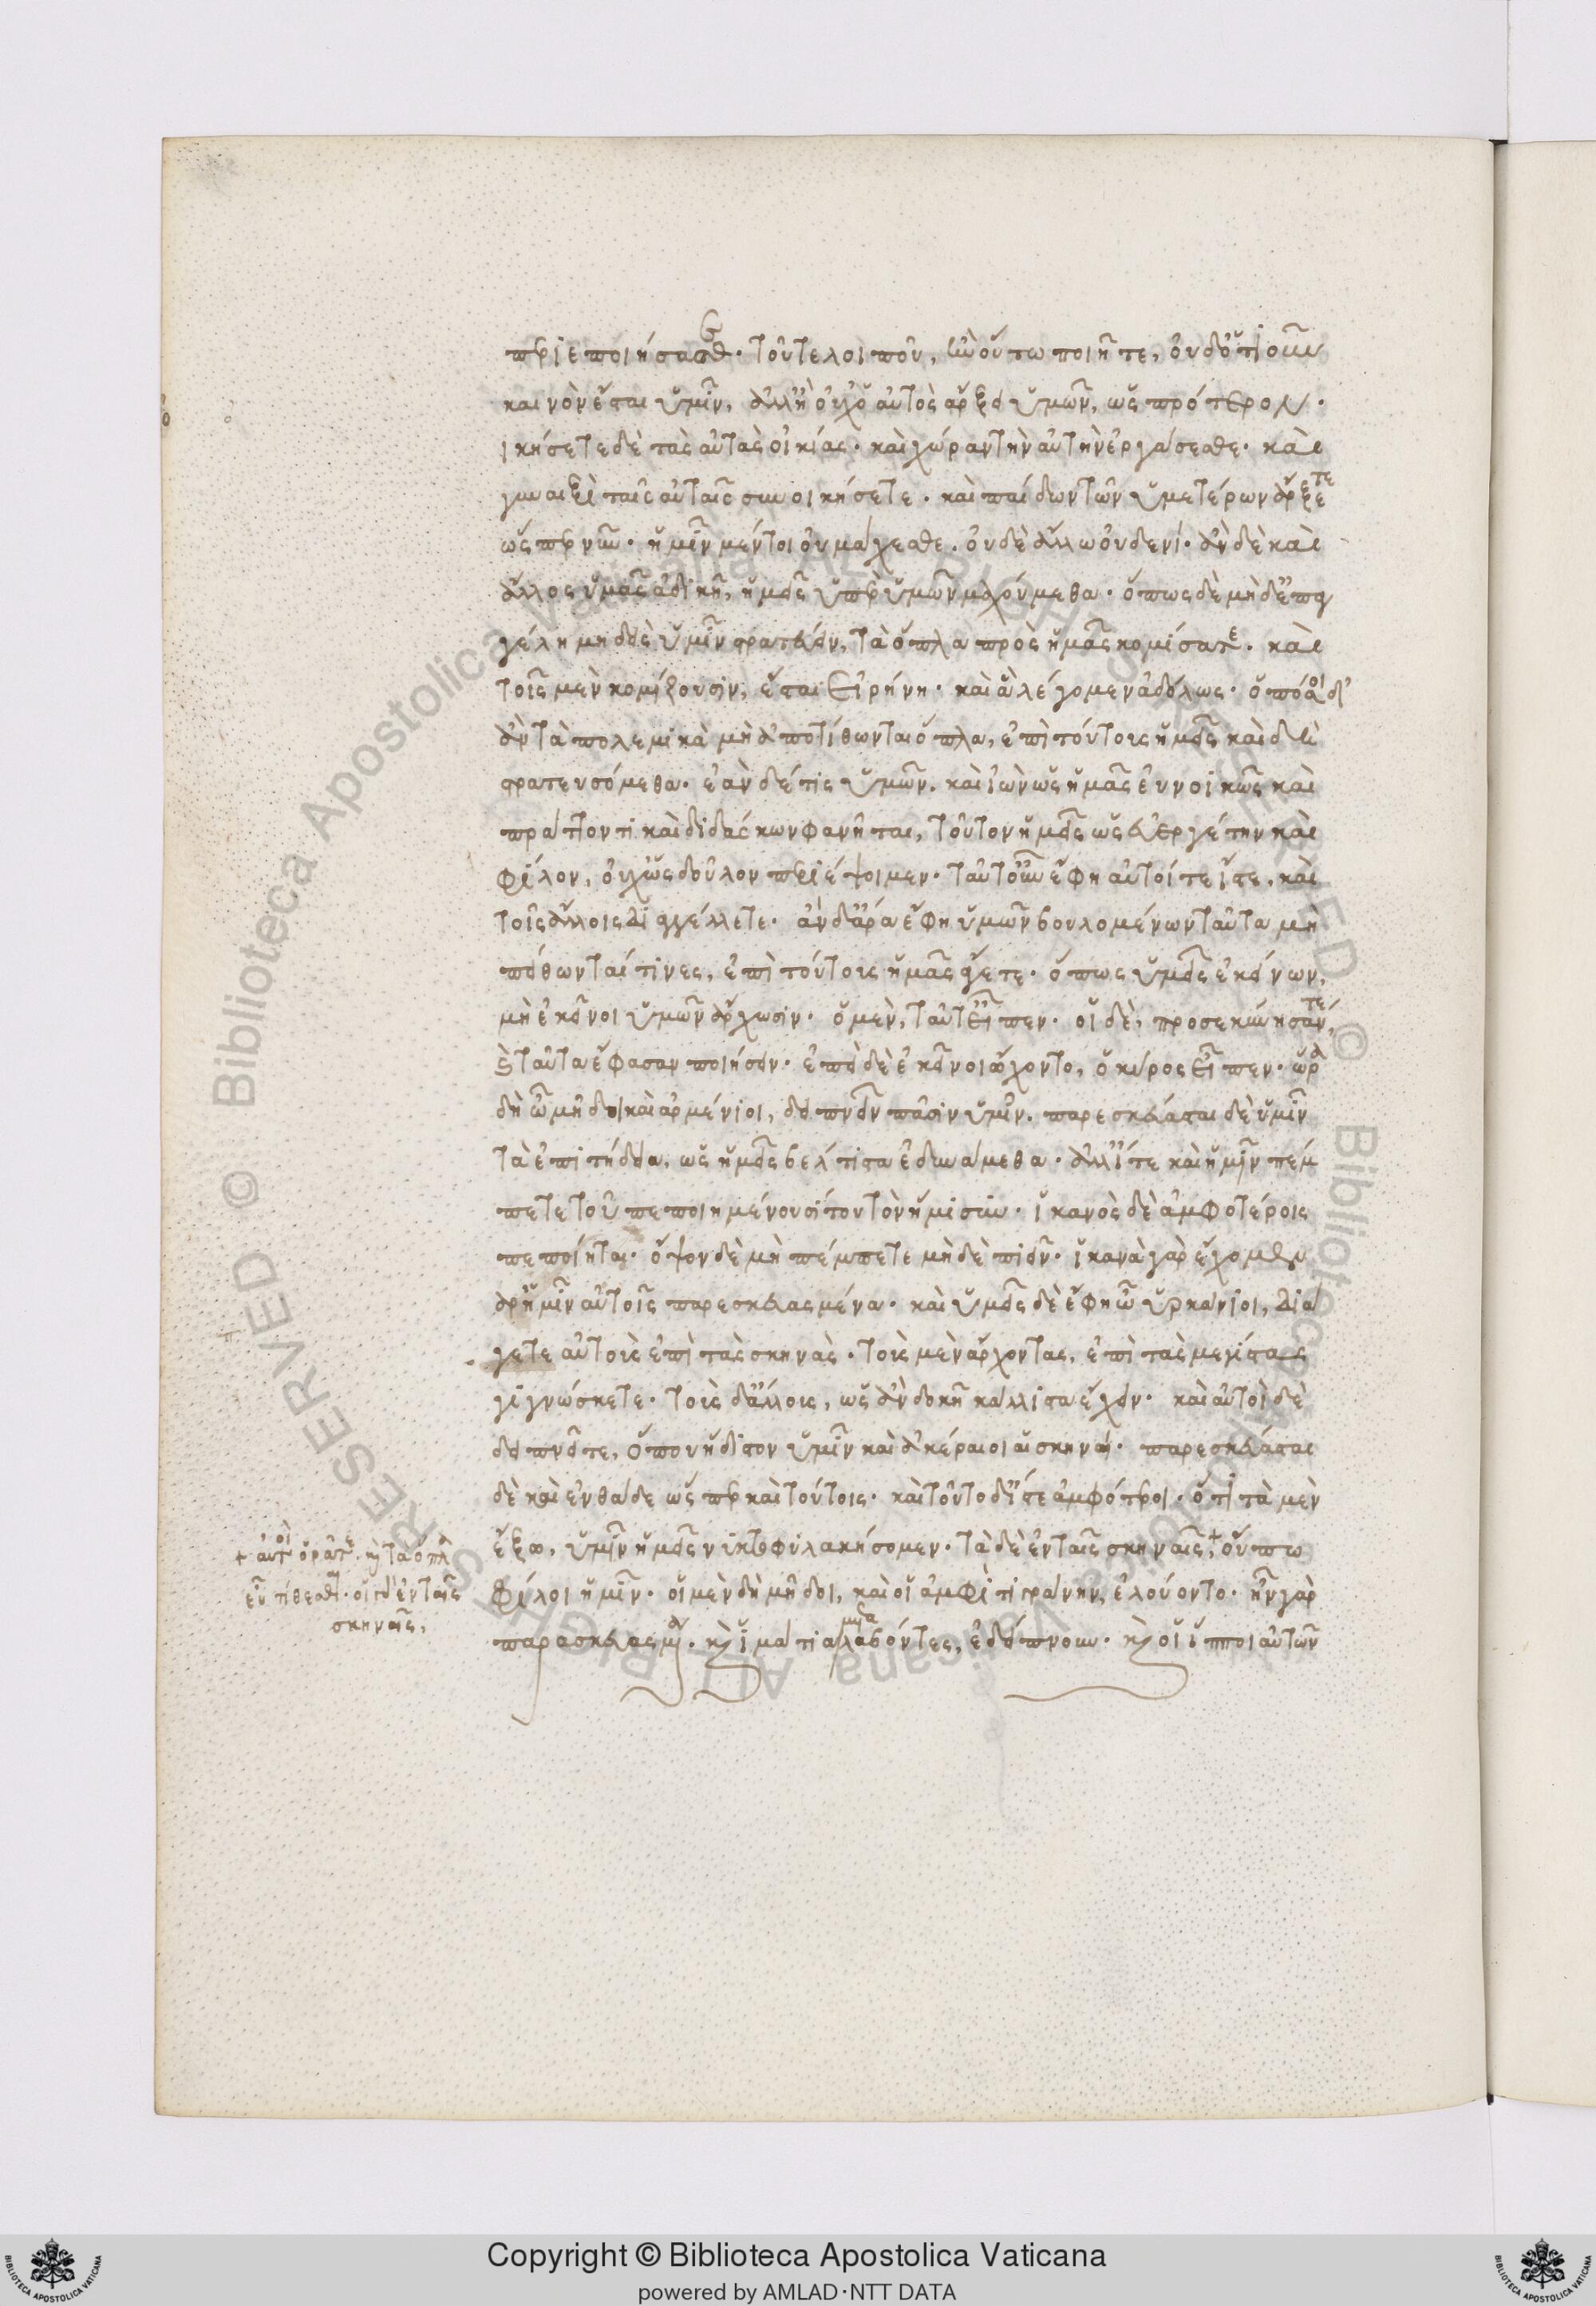 περιεποιήσασθε. τοῦτε λοιποῦ, ἢν οὕτω ποιῆτε, οὐδ' ὁτιοῦν
καινὸν ἔσται ὑμῖν, ἀλλ' ἢ οὐχ ὁ αὐτὸς ἄρξει ὑμῶν, ὡς πρότερον.
ικήσετε δὲ τὰς αὐτὰς οἰκίας. καὶ χώραν τὴν αὐτὴν ἐργάσεσθε. καὶ
γυναιξὶ ταῖς αὐταῖς συνοικήσετε. καὶ παίδων τῶν ὑμετέρων ἄρξετε
ὥσπερ νῦν. ἡμῖν μέντοι οὐ μαχεσθε. οὐδὲ ἄλλω οὐδενί. ἂν δὲ καὶ
ἄλλος ὑμᾶς ἀδικῆ, ἡμεῖς ὑπὲρ ὑμῶν μαχούμεθα. ὅπως δὲ μὴδ' ἐπαγ
γέλη μηδεὶς ὑμῖν στρατεύειν, τὰ ὅπλα πρὸς ἡμᾶς κομίσατε. καὶ
τοῖς μὲν κομίζουσιν, ἔσται εἰρήνη. καὶ ἃ λέγομεν ἀδόλως. ὁπόσοι δ'
ἂν τὰ πολεμικὰ μὴ ἀποτίθωνται ὅπλα, ἐπὶ τούτοις ἡμεῖς καὶ δὴ
στρατευσόμεθα. ἐὰν δέ τις ὑμῶν. καὶ ἰὼν ὡς ἡμᾶς εὐνοικῶς καὶ
πράττον τι καὶ διδάσκων φανῆται, τοῦτον ἡμεῖς ὡς εὐεργέτην καὶ
φίλον, οὐχ ὡς δοῦλον περιέψομεν. ταῦτ' οὖν ἔφη αὐτοί τε ἴστε, καὶ
τοῖς ἄλλοις διαγγέλλετε. ἂν δ' ἄρα ἔφη ὑμῶν βουλομένων ταῦτα μὴ
πείθωνταί τινες, ἐπὶ τούτοις ἡμᾶς ἄγετε. ὅπως ὑμεῖς ἐκείνων,
μὴ ἐκεῖνοι ὑμῶν ἄρχωσιν. ὁ μὲν, ταῦτ' εἶπεν. οἱ δὲ, προσεκύνησάν τε,
καὶ ταῦτα ἔφασαν ποιήσειν. ἐπεὶ δὲ ἐκεῖνοι ᾤχοντο, ὁ κῦρος εἶπεν. ὥρα
δὴ ὦ μῆδοι καὶ ἀρμένιοι, δειπνεῖν πᾶσιν ὑμῖν. παρεσκεύασται δὲ ὑμῖν
τὰ ἐπιτήδεια, ὡς ἡμεῖς βέλτιστα ἐδυνάμεθα. ἀλλ' ἴτε καὶ ἡμῖν πέμ
πετε τοῦ πεποιημένου σίτου τὸν ἥμισυν. ἱκανὸς δὲ ἀμφοτέροις
πεποίηται. ὄψον δὲ μὴ πέμπετε μηδὲ πιεῖν. ἱκανὰ γὰρ ἔχομεν
παρ' ἡμῖν αὐτοῖς παρεσκευασμένα. καὶ ὑμεῖς δὲ ἔφη ὦ ὑρκάνιοι, διά
γετε αὐτοὺς ἐπὶ τὰς σκηνὰς. τοὺς μὲν ἄρχοντας, ἐπὶ τὰς μεγίστας
γιγνώσκετε. τοὺς δ' ἄλλους, ὡς ἂν δοκῆ κάλλιστα ἔχειν. καὶ αὐτοὶ δὲ
δειπνεῖτε, ὅπου ἥδιστον ὑμῖν καὶ ἀκέραιοι αἱ σκηναί. παρεσκεύασται
δὲ καὶ ἐνθάδε ὥσπερ καὶ τούτοις. καὶ τοῦτο δ' ἴστε ἀμφότεροι. ὅτι τὰ μὲν
ἔξω, ὑμῖν ἡμεῖς νυκτοφυλακήσομεν. τὰ δὲ ἐν ταῖς σκηναῖς, + οὔπω
φίλοι ἡμῖν. οἱ μὲν δὴ μῆδοι, καὶ οἱ ἀμφὶ τιγράνην, ἐλούοντο. ἦν γὰρ
παρασκευασμένα. καὶ ἱμάτια μεταλαβόντες, ἐδείπνουν. καὶ οἱ ἵπποι αὐτῶν
+ αὐτοὶ ὁρᾶτε. καὶ τὰ ὅπλα
εὖ τίθεσθε. οἱ γὰρ ἐν ταῖς
σκηναῖς,
© Biblioteca Apostolica Vaticana ALL RIGHTS RESERVED
Copyright © Biblioteca Apostolica Vaticana
powered by AMLAD·NTT DATA